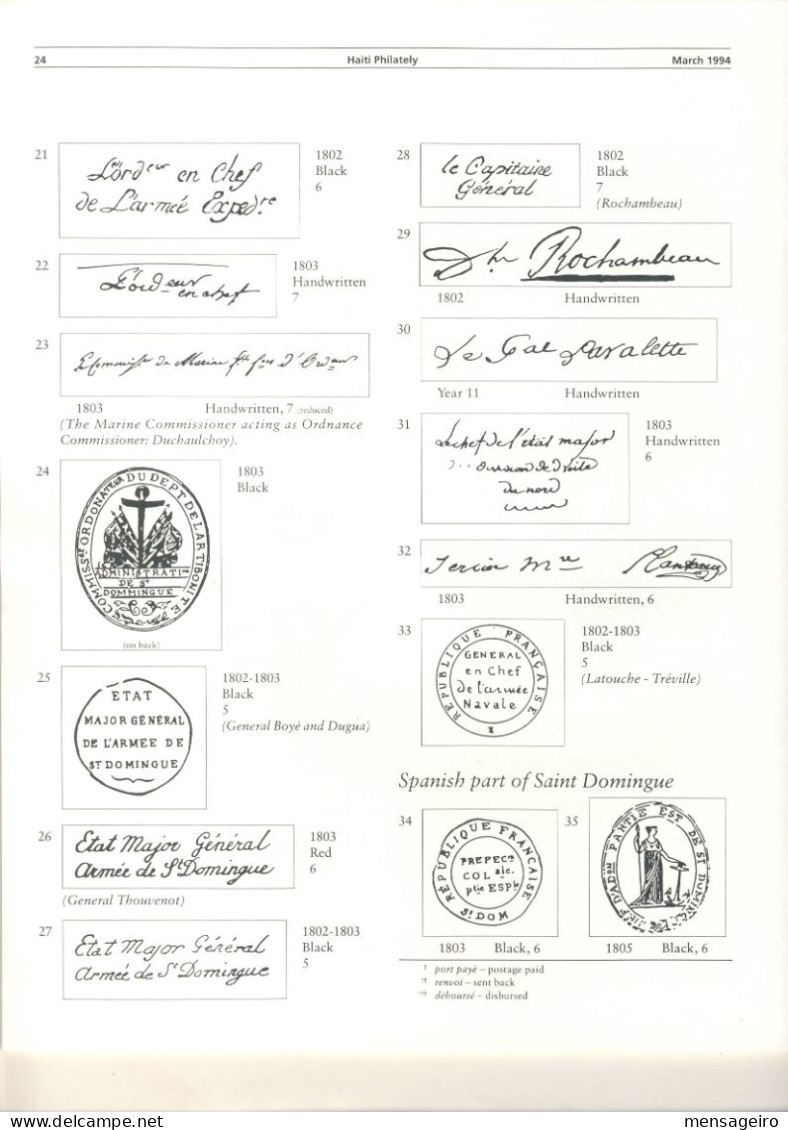 24 Haiti Philately March 1994
21
L'ordeur en Chef
de L'armée Expedre
1802
Black
6
22
L'ordeur
en chef
1803
Handwritten
7
23
1803 Handwritten, 7 (reduced)
(The Marine Commissioner acting as Ordnance
Commissioner: Duchaulchoy).
24
COMMISSRE ORDONATEUR DU DEPT DE L'ARTIBONITE
ADMINISTRATION
DE ST
DOMMINGUE
(on back)
1803
Black
25
ETAT
MAJOR GÉNÉRAL
DE L'ARMEE DE
ST DOMINGUE
1802-1803
Black
5
(General Boyé and Dugua)
26
Etat Major Général
Armée de St Domingue
1803
Red
6
(General Thouvenot)
27
Etat Major Général
Armée de St Domingue
1802-1803
Black
5
28
le Capitaine
Général
1802
Black
7
(Rochambeau)
29
Rochambeau
1802 Handwritten
30
Le Gal Lavalette
Year 11 Handwritten
31
Le chef de l'état major
division de droite
du nord
1803
Handwritten
6
32
1803 Handwritten, 6
33
RÉPUBLIQUE FRANÇAISE
GENERAL
en Chef
de l'armée
Navale
1802-1803
Black
5
(Latouche - Tréville)
Spanish part of Saint Domingue
34
RÉPUBLIQUE FRANÇAISE
PREFECre
COLale.
ptie ESPle
St DOM
1803 Black, 6
35
PARTIE EST DE ST DOMINGUE
1805 Black, 6
port payé – postage paid
renvoi – sent back
déboursé – disbursed
mensageiro